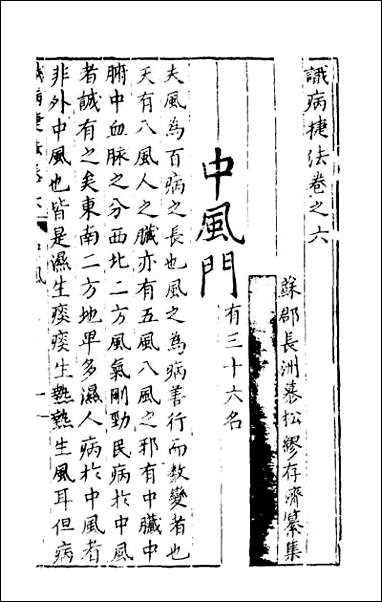 識病捷法卷之六
蘇郡長洲慕松繆存濟纂集
中風門
有三十六名
夫風為百病之長也風之為病善行而數變者也
天有八風人之臟亦有五風八風之邪有中臟中
腑中血脉之分西北二方風氣剛勁民病於中風
者誠有之矣東南二方地卑多濕人病於中風者
非外中風也皆是濕生痰痰生熱熱生風耳但病